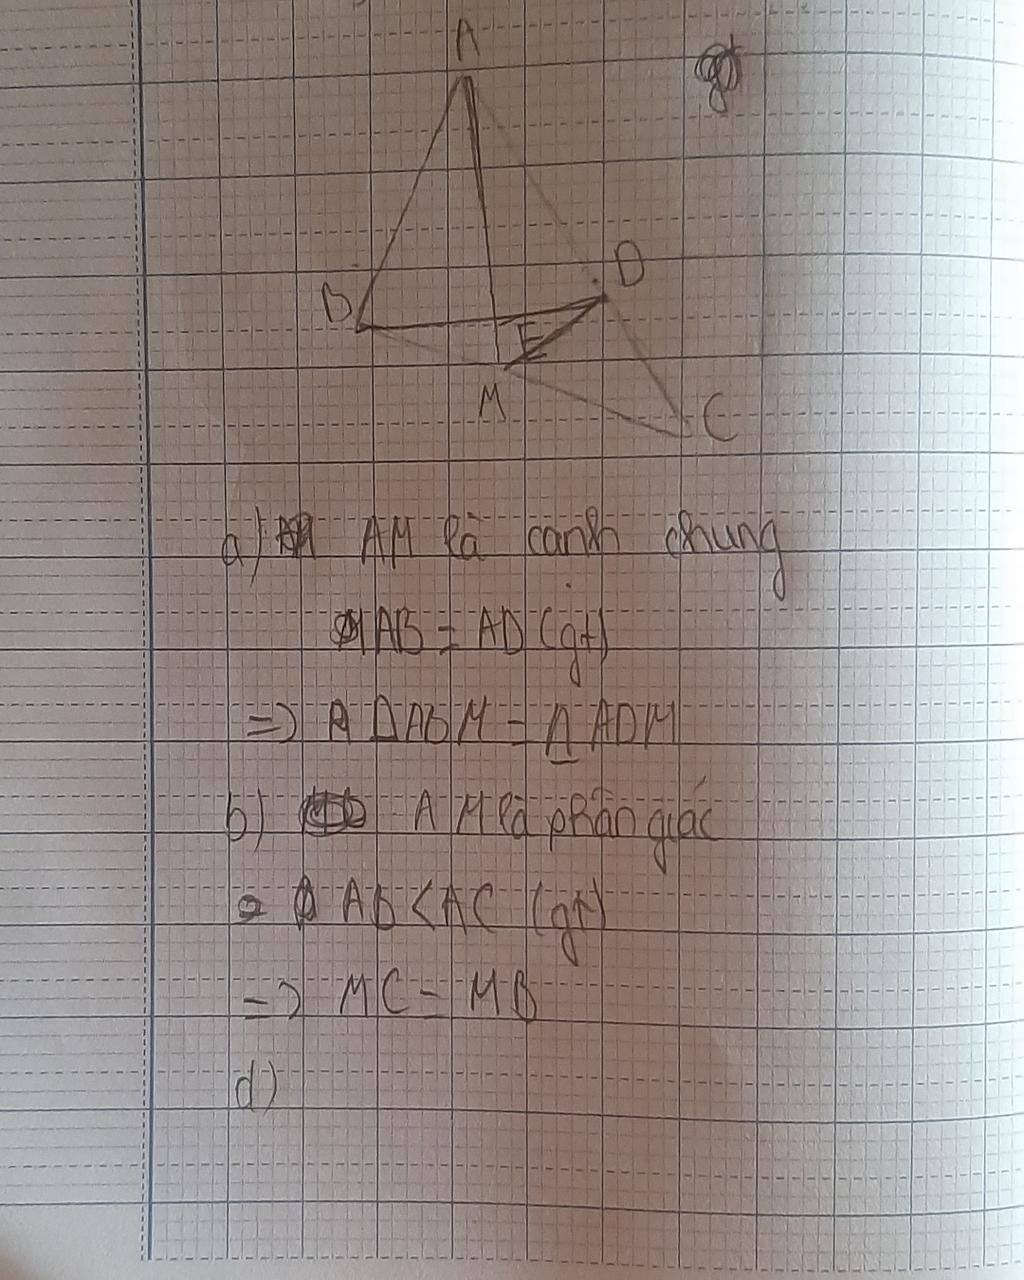 A
D
B
E
M
C
a) AM là canh chung
AB = AD (gt)
=> ΔABM = Δ ADM
b) AM là phân giác
AB < AC (gt)
=> MC = MB
d)